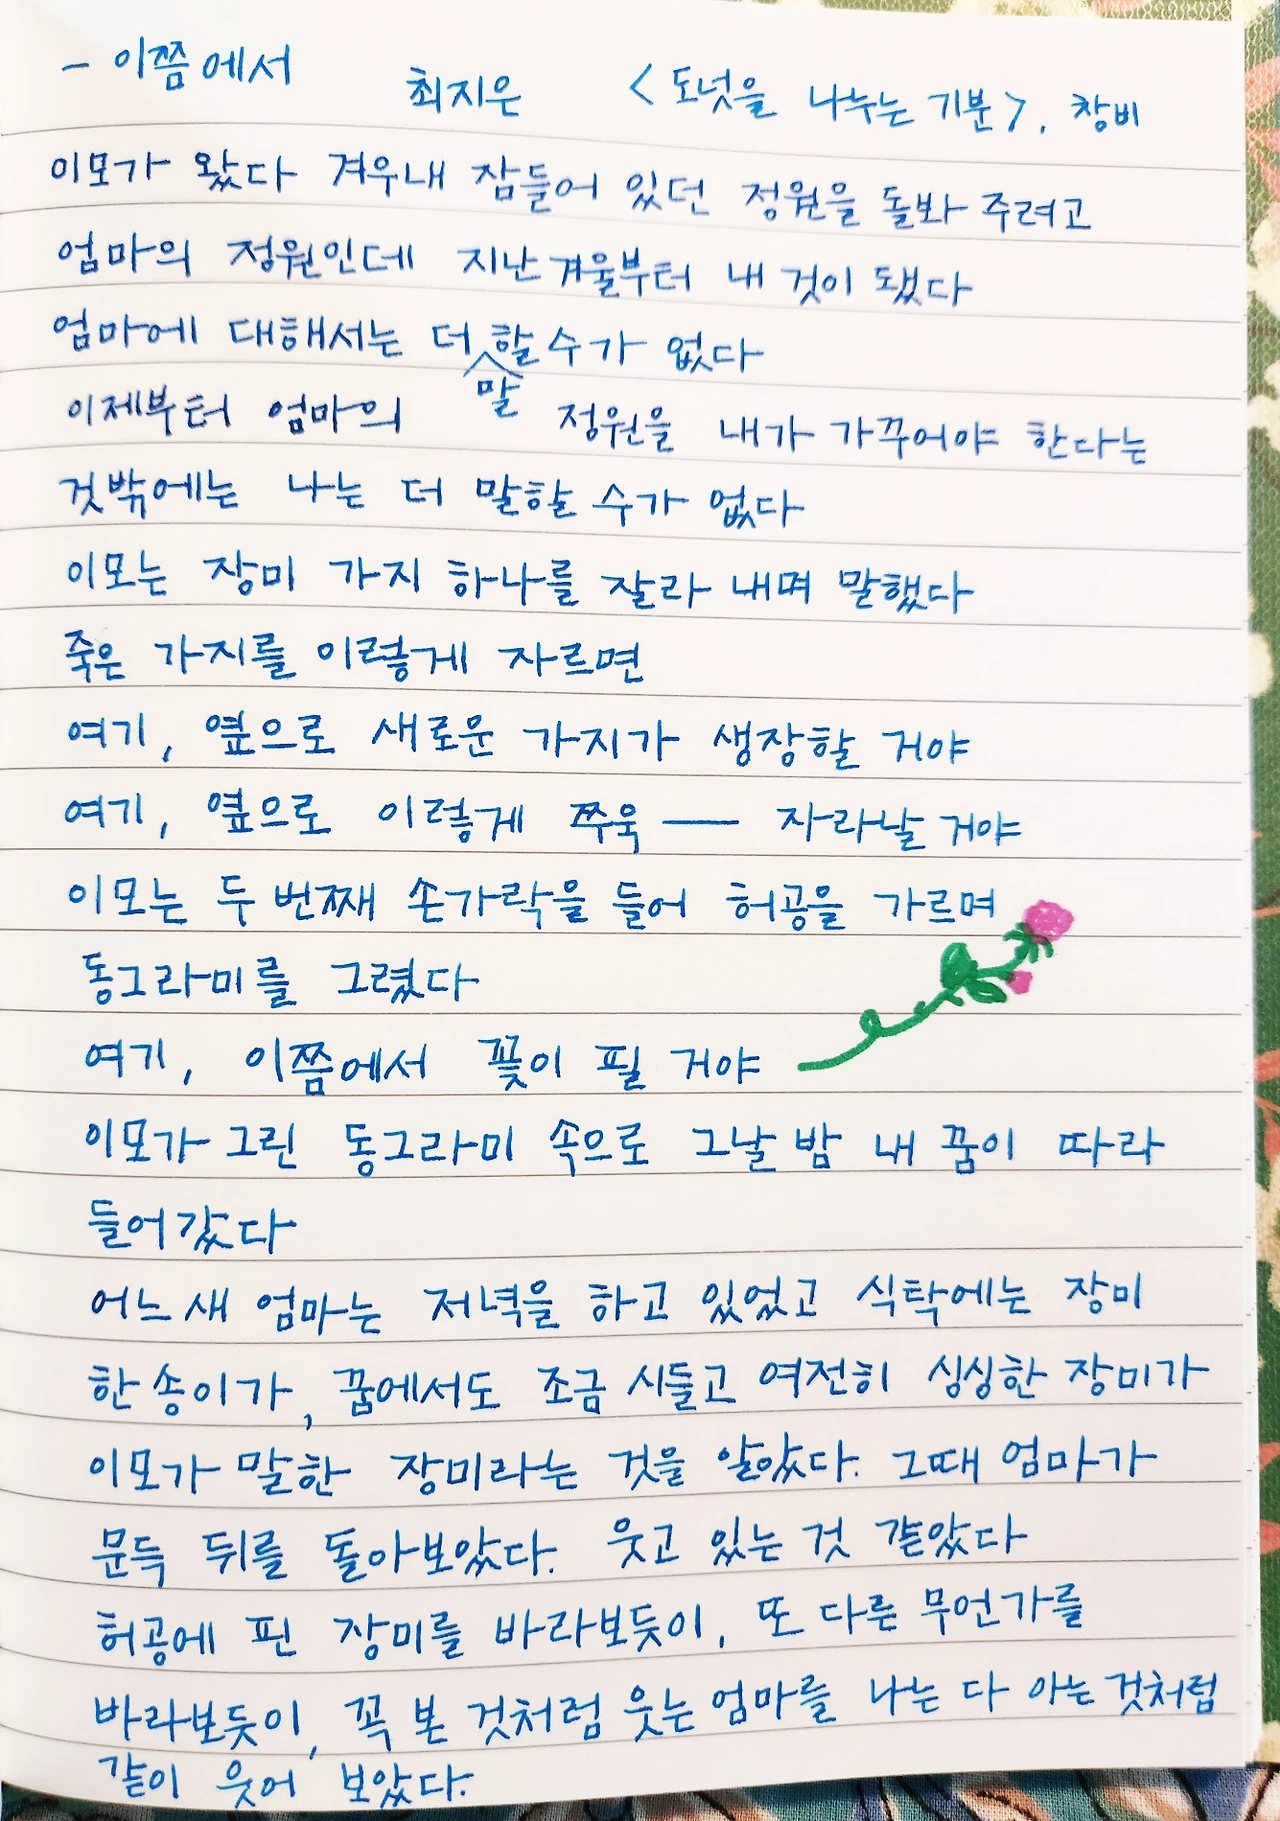 - 이쯤에서 최지은 <도넛을 나누는 기분>, 창비
이모가 왔다 겨우내 잠들어 있던 정원을 돌봐 주려고
엄마의 정원인데 지난겨울부터 내 것이 됐다
엄마에 대해서는 더 말할 수가 없다
이제부터 엄마의 정원을 내가 가꾸어야 한다는
것밖에는 나는 더 말할 수가 없다
이모는 장미 가지 하나를 잘라 내며 말했다
죽은 가지를 이렇게 자르면
여기, 옆으로 새로운 가지가 생장할 거야
여기, 옆으로 이렇게 쭈욱 — 자라날 거야
이모는 두 번째 손가락을 들어 허공을 가르며
동그라미를 그렸다
여기, 이쯤에서 꽃이 필 거야
이모가 그린 동그라미 속으로 그날 밤 내 꿈이 따라
들어갔다
어느새 엄마는 저녁을 하고 있었고 식탁에는 장미
한 송이가, 꿈에서도 조금 시들고 여전히 싱싱한 장미가
이모가 말한 장미라는 것을 알았다. 그때 엄마가
문득 뒤를 돌아보았다. 웃고 있는 것 같았다
허공에 핀 장미를 바라보듯이, 또 다른 무언가를
바라보듯이, 꼭 본 것처럼 웃는 엄마를 나는 다 아는 것처럼
같이 웃어 보았다.